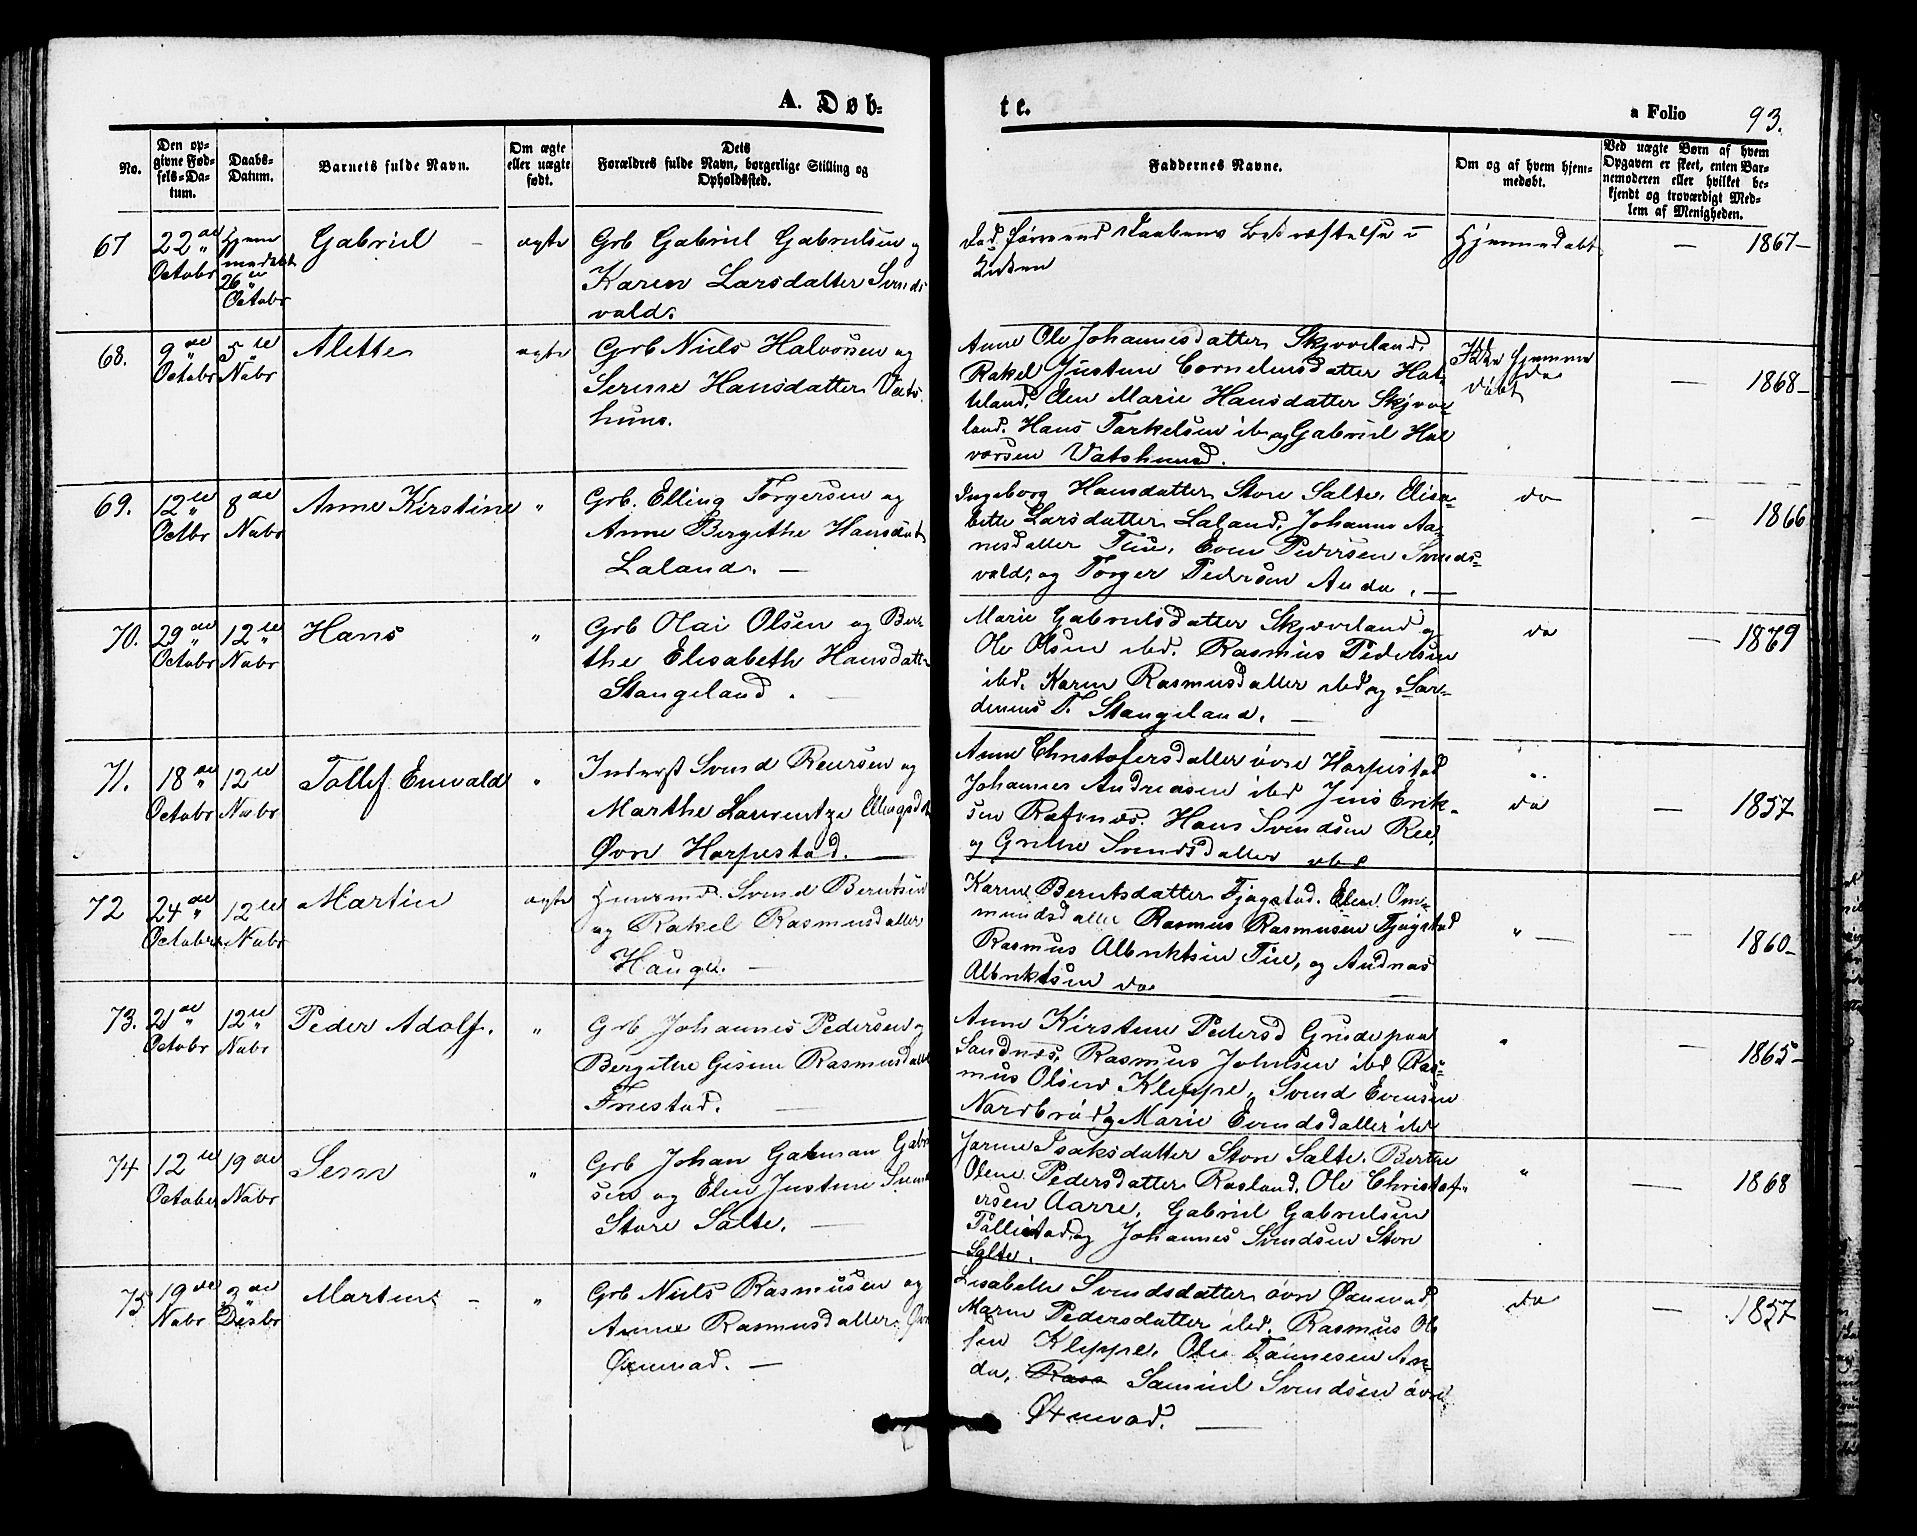 A. Døb-
te.
a Folio 93.
No.
Den op-
givne Fød-
sels-Da-
tum.
Daabs-
Datum.
Barnets fulde Navn.
Om ægte
eller uægte
født.
Dets
Forældres fulde Navn, borgerlige Stilling og
Opholdssted.
Faddernes Navne.
Om og af hvem hjem-
medøbt.
Ved uægte Børn af hvem
Opgaven er skeet, enten Bar-
nemoderen eller hvilket be-
kjendt og troværdigt Med-
lem af Menigheden.
67 22de Octobr
Hjemmedøbt 26de Octobr
Gabriel –
ægte
Grb Gabriel Gabrielsen og
Karen Larsdatter Svends
vald.
Død førend Daabens Bekræftelse i
Kirken
Hjemmedøbt
— 1867–
68. 9de Octobr
5te Nobr
Alette
ægte
Grb Niels Halvorsen og
Serine Hansdatter Vats-
huus.
Anne Ole Johannesdatter Skjæveland,
Rakel Justine Cornelius datter Hat-
teland, Elen Marie Hansdatter Skjæve-
land. Hans Torkelsen ib og Gabriel Hal
vorsen Vatshuus.
Ikke hjemme
døbt
— 1868–
69. 12te Octbr
8de Nobr
Anne Kirstine
"
Grb. Elling Torgersen og
Anne Bergithe Hansdat
Laland. —
Ingeborg Hansdatter Store Salte, Elisa-
bette Larsdatter Laland, Johanne Aa-
nesdatter Tue, Even Pedersen Svends-
vald, og Torger Pedersen Anda. —
do
— 1866
70. 29de Octobr
12te Nobr
Hans
"
Grb Olai Olsen og Ber-
the Elisabeth Hansdatt
Stangeland. —
Marie Gabrielsdatter Skjæveland og
Ole Olsen ibd. Rasmus Pedersen
ibd. Karen Rasmusdatter ibd og
T. Stangeland. —
do
— 1869
71. 18de Octobr
12te Nobr
Tollef Enevald
"
Inderst Svend Reiersen og
Marthe Lavrentze Ellingsdt
Øvre Horpestad. —
Anne Christofersdatter øvre Horpestad
Johannes Andreasen ibd Jens Erik-
sen Refsnæs. Hans Svendsen Ree,
og Grethe Svendsdatter ibd
" do
— 1857
72 24de Octobr.
12te Nobr
Martin
ægte
Huusmd. Svend Berntsen
og Rakel Rasmusdatter
Hauge. —
Karen Berntsdatter Tjøgstad. Elen Om-
mundsdatter Rasmus Rasmusen Tjøgstad
Rasmus Albriktsen Tue, og Andreas
Albriktsen do
" —
— 1860–
73. 21de Octobr
12te Nobr
Peder Adolf.
"
Grb Johannes Pedersen og
Bergithe Gisine Rasmusdatt
Friestad. —
Anne Kirstine Pedersd Grude paa
Sandnæs. Rasmus Johnsen ibd Ras-
mus Olsen Kleppe, Svend Evensen
Nordbrød og Marie Evendsdatter ibd
"
— 1865–
74 12te October
19de Nobr
Sem
"
Grb Johan Gabman Gabri
sen og Elen Justine Svend
Store Salte. —
Jorine Isaksdatter Store Salte. Berthe
Olene Pedersdatter Rosland, Ole Christof-
fersen Aarre, Gabriel Gabrielsen
Tallestad, og Johannes Svendsen Store
Salte.
"
— 1868
75 19de Nobr
3de Desbr
Martin –
"
Grb Niels Rasmusen og
Anne Rasmusdatter Øvr
Øxnevad. —
Lisabette Svendsdatter øvre Øxnevad,
Maren Pedersdatter ibd, Rasmus Ol-
sen Kleppe, Ole Tønnesen An-
da, Samuel Svendsen øvre
Øxnevad. —
do
— 1857